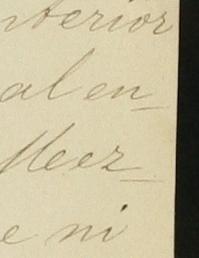 nterior
al en_
Meez_
e ni